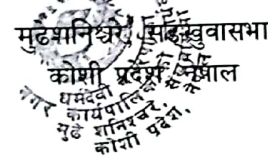 मुढेशनिश्चरे, संखुवासभा
कोशी प्रदेश, नेपाल
धर्मदेवी
नगर कार्यपालिका
मुढे शनिश्चरे,
कोशी प्रदेश,